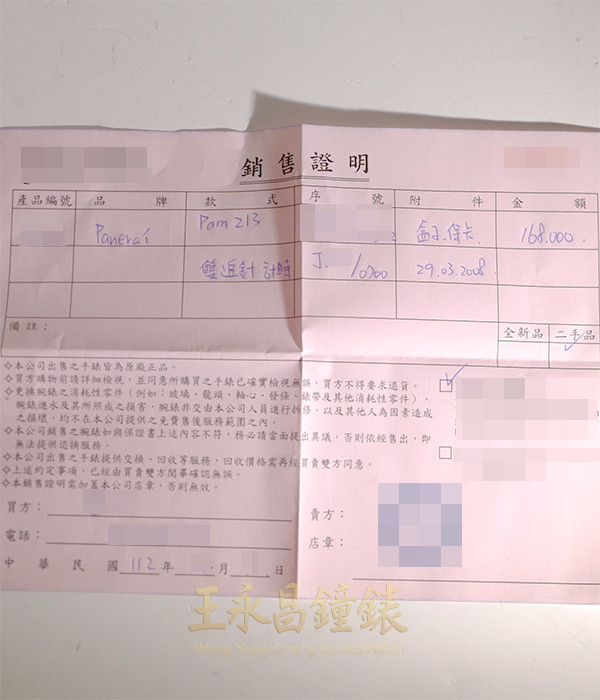 銷售證明
產品編號 品牌 款式 序號 附件 金額
Panerai Pam 213 盒子.保卡 168.000.
雙追針計時 J. /0700 29.03.2008.
備註：
全新品 二手品
◇本公司出售之手錶皆為原廠正品。
◇買方購物前請詳細檢視，並同意所購買之手錶已確實檢視無誤，買方不得要求退貨。
◇更換腕錶之消耗性零件（例如：玻璃、龍頭、軸心、發條、錶帶及其他消耗性零件），
腕錶進水及其所照成之損害，腕錶非交由本公司人員進行拆修，以及其他人為因素造成
之損壞，均不在本公司提供之免費售後服務範圍之內。
◇本公司銷售之腕錶如與保證書上述內容不符，務必請當面提出異議，否則依經售出，即
無法提供退換服務。
◇本公司出售之手錶提供交換、回收等服務，回收價格需再經買賣雙方同意。
◇上述約定事項，已經由買賣雙方閱畢確認無誤。
◇本銷售證明需加蓋本公司店章，否則無效。
買方：
賣方：
電話：
店章：
中華民國 112 年 月 日
王永昌鐘錶